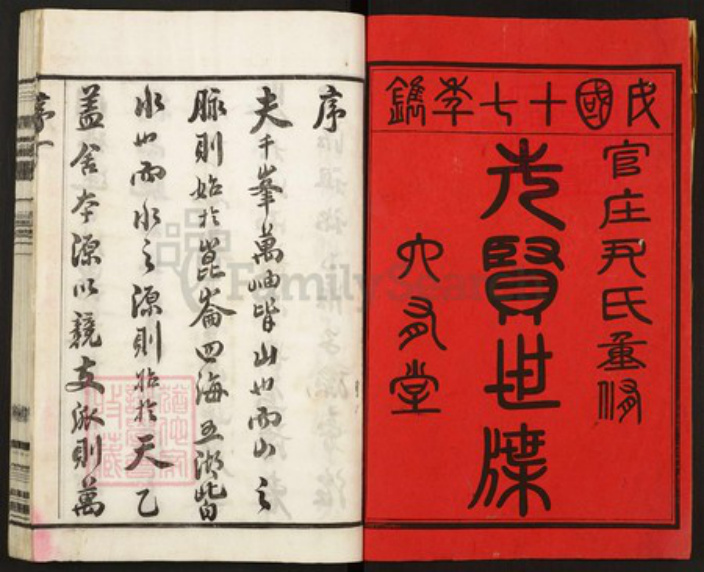 民國十七年鐫
官庄尹氏重修
先賢世牒
六有堂
序
夫千峯萬岫皆山也而山之
脉則始於崑崙四海五湖皆
水也而水之源則始於天乙
蓋舍本源以競支派則萬
序一
FamilySearch